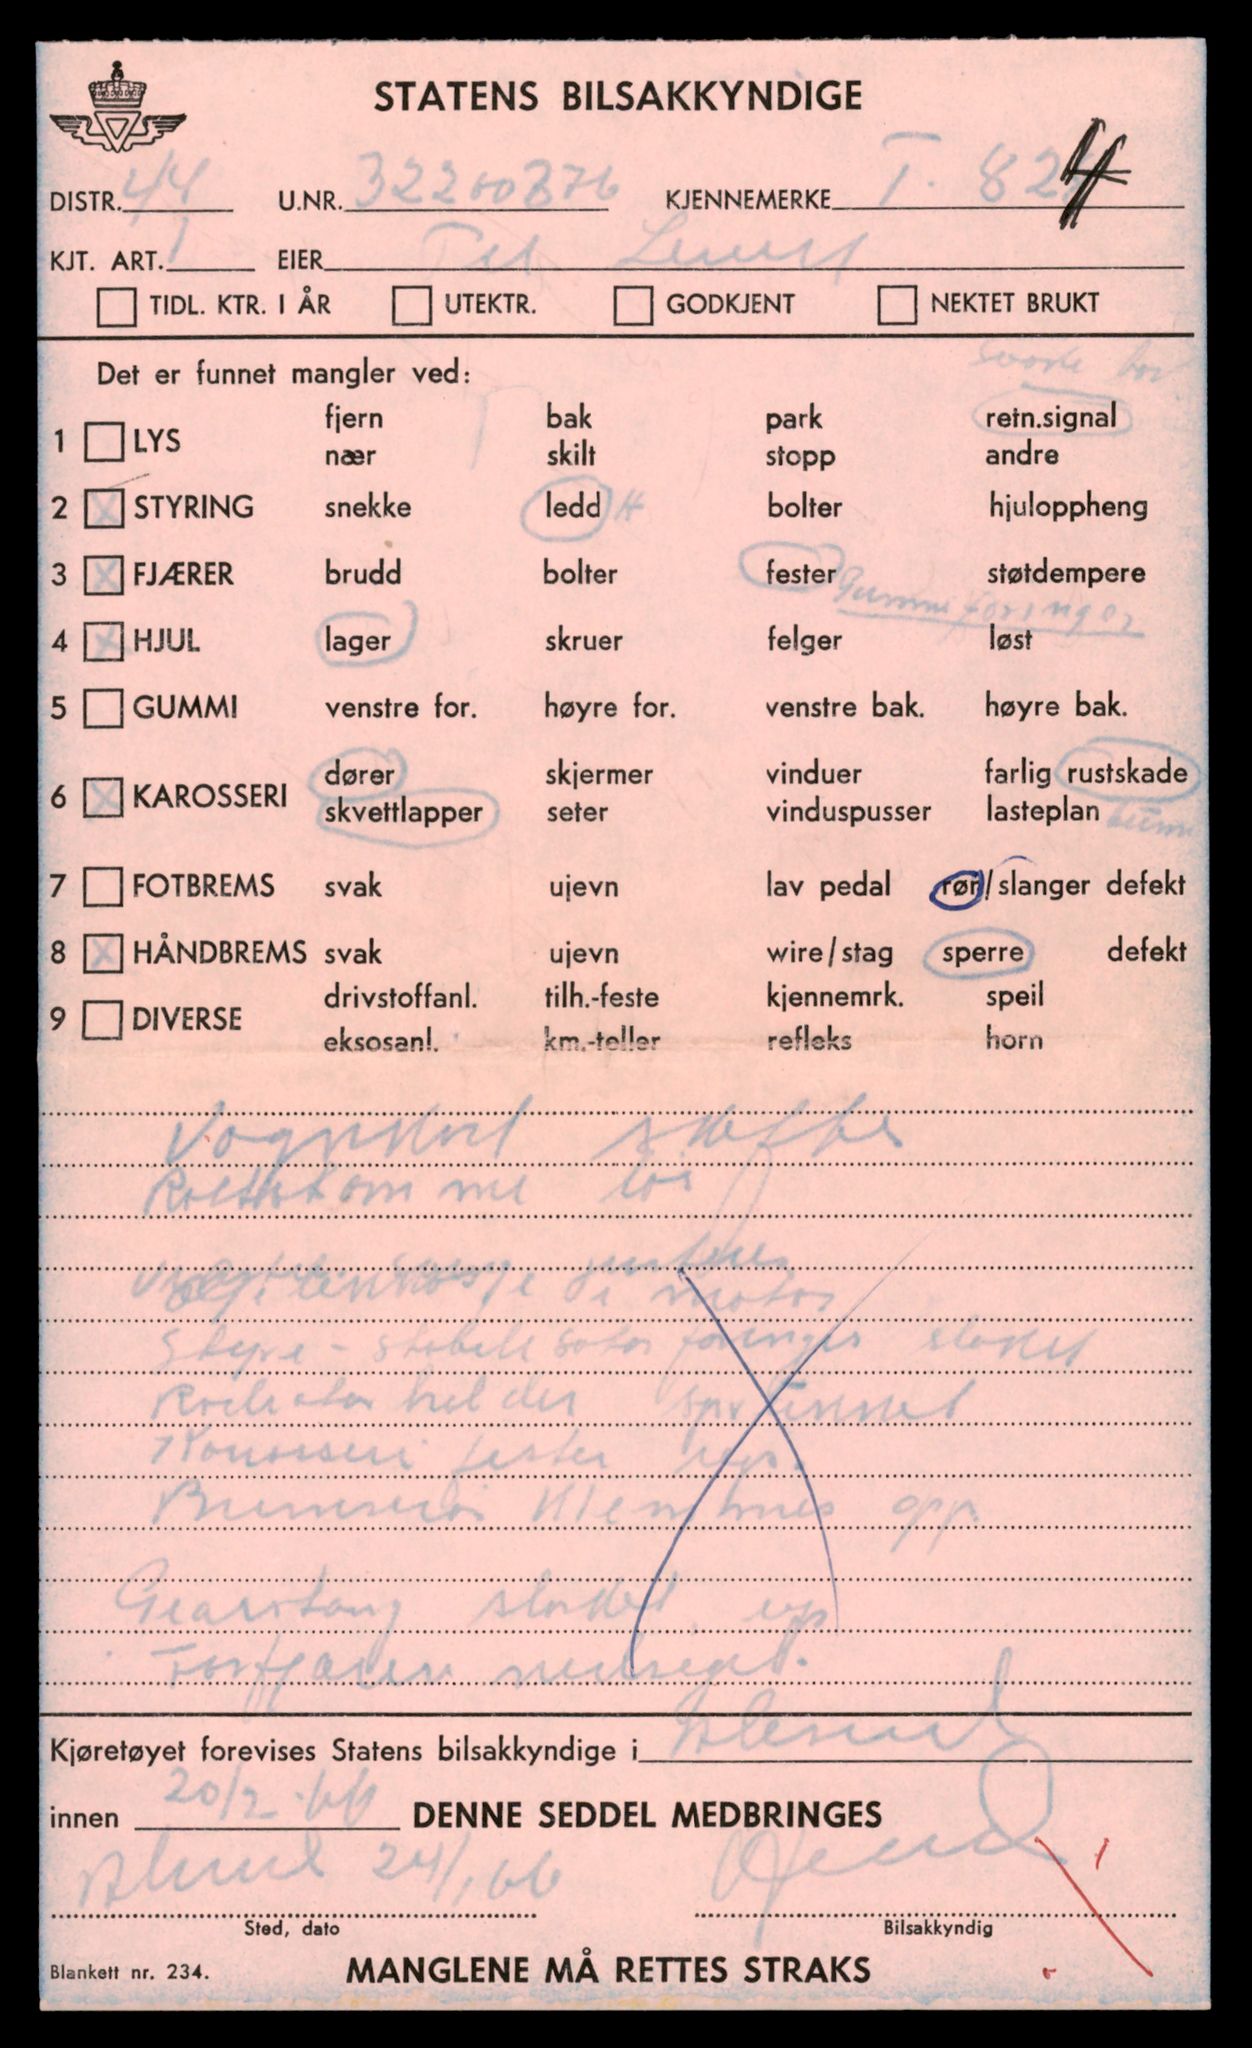 STATENS BILSAKKYNDIGE
DISTR. 44 U.NR. 32200876 KJENNEMERKE T. 824
KJT. ART. 1 EIER
TIDL. KTR. I ÅR UTEKTR. GODKJENT NEKTET BRUKT
Det er funnet mangler ved:
1 LYS fjern bak park retn.signal
nær skilt stopp andre
2 X STYRING snekke ledd H bolter hjuloppheng
3 X FJÆRER brudd bolter fester støtdempere
Gummiforinger
4 X HJUL lager skruer felger løst
5 GUMMI venstre for. høyre for. venstre bak. høyre bak.
6 X KAROSSERI dører skjermer vinduer farlig rustskade
skvettlapper seter vinduspusser lasteplan
7 FOTBREMS svak ujevn lav pedal rør/slanger defekt
8 X HÅNDBREMS svak ujevn wire/stag sperre defekt
9 DIVERSE drivstoffanl. tilh.-feste kjennemrk. speil
eksosanl. km.-teller refleks horn
Vognkort skaffes
løs
i motor
Styre - stabilisator foringer slakk
Radiator holder
Karosseri fester rep.
Bremserør klemmes opp
Gearstang rep
Forfjærer
Kjøretøyet forevises Statens bilsakkyndige i Ålesund
innen 20/2-66 DENNE SEDDEL MEDBRINGES
Ålesund 24/1 66
Sted, dato Bilsakkyndig
Blankett nr. 234. MANGLENE MÅ RETTES STRAKS